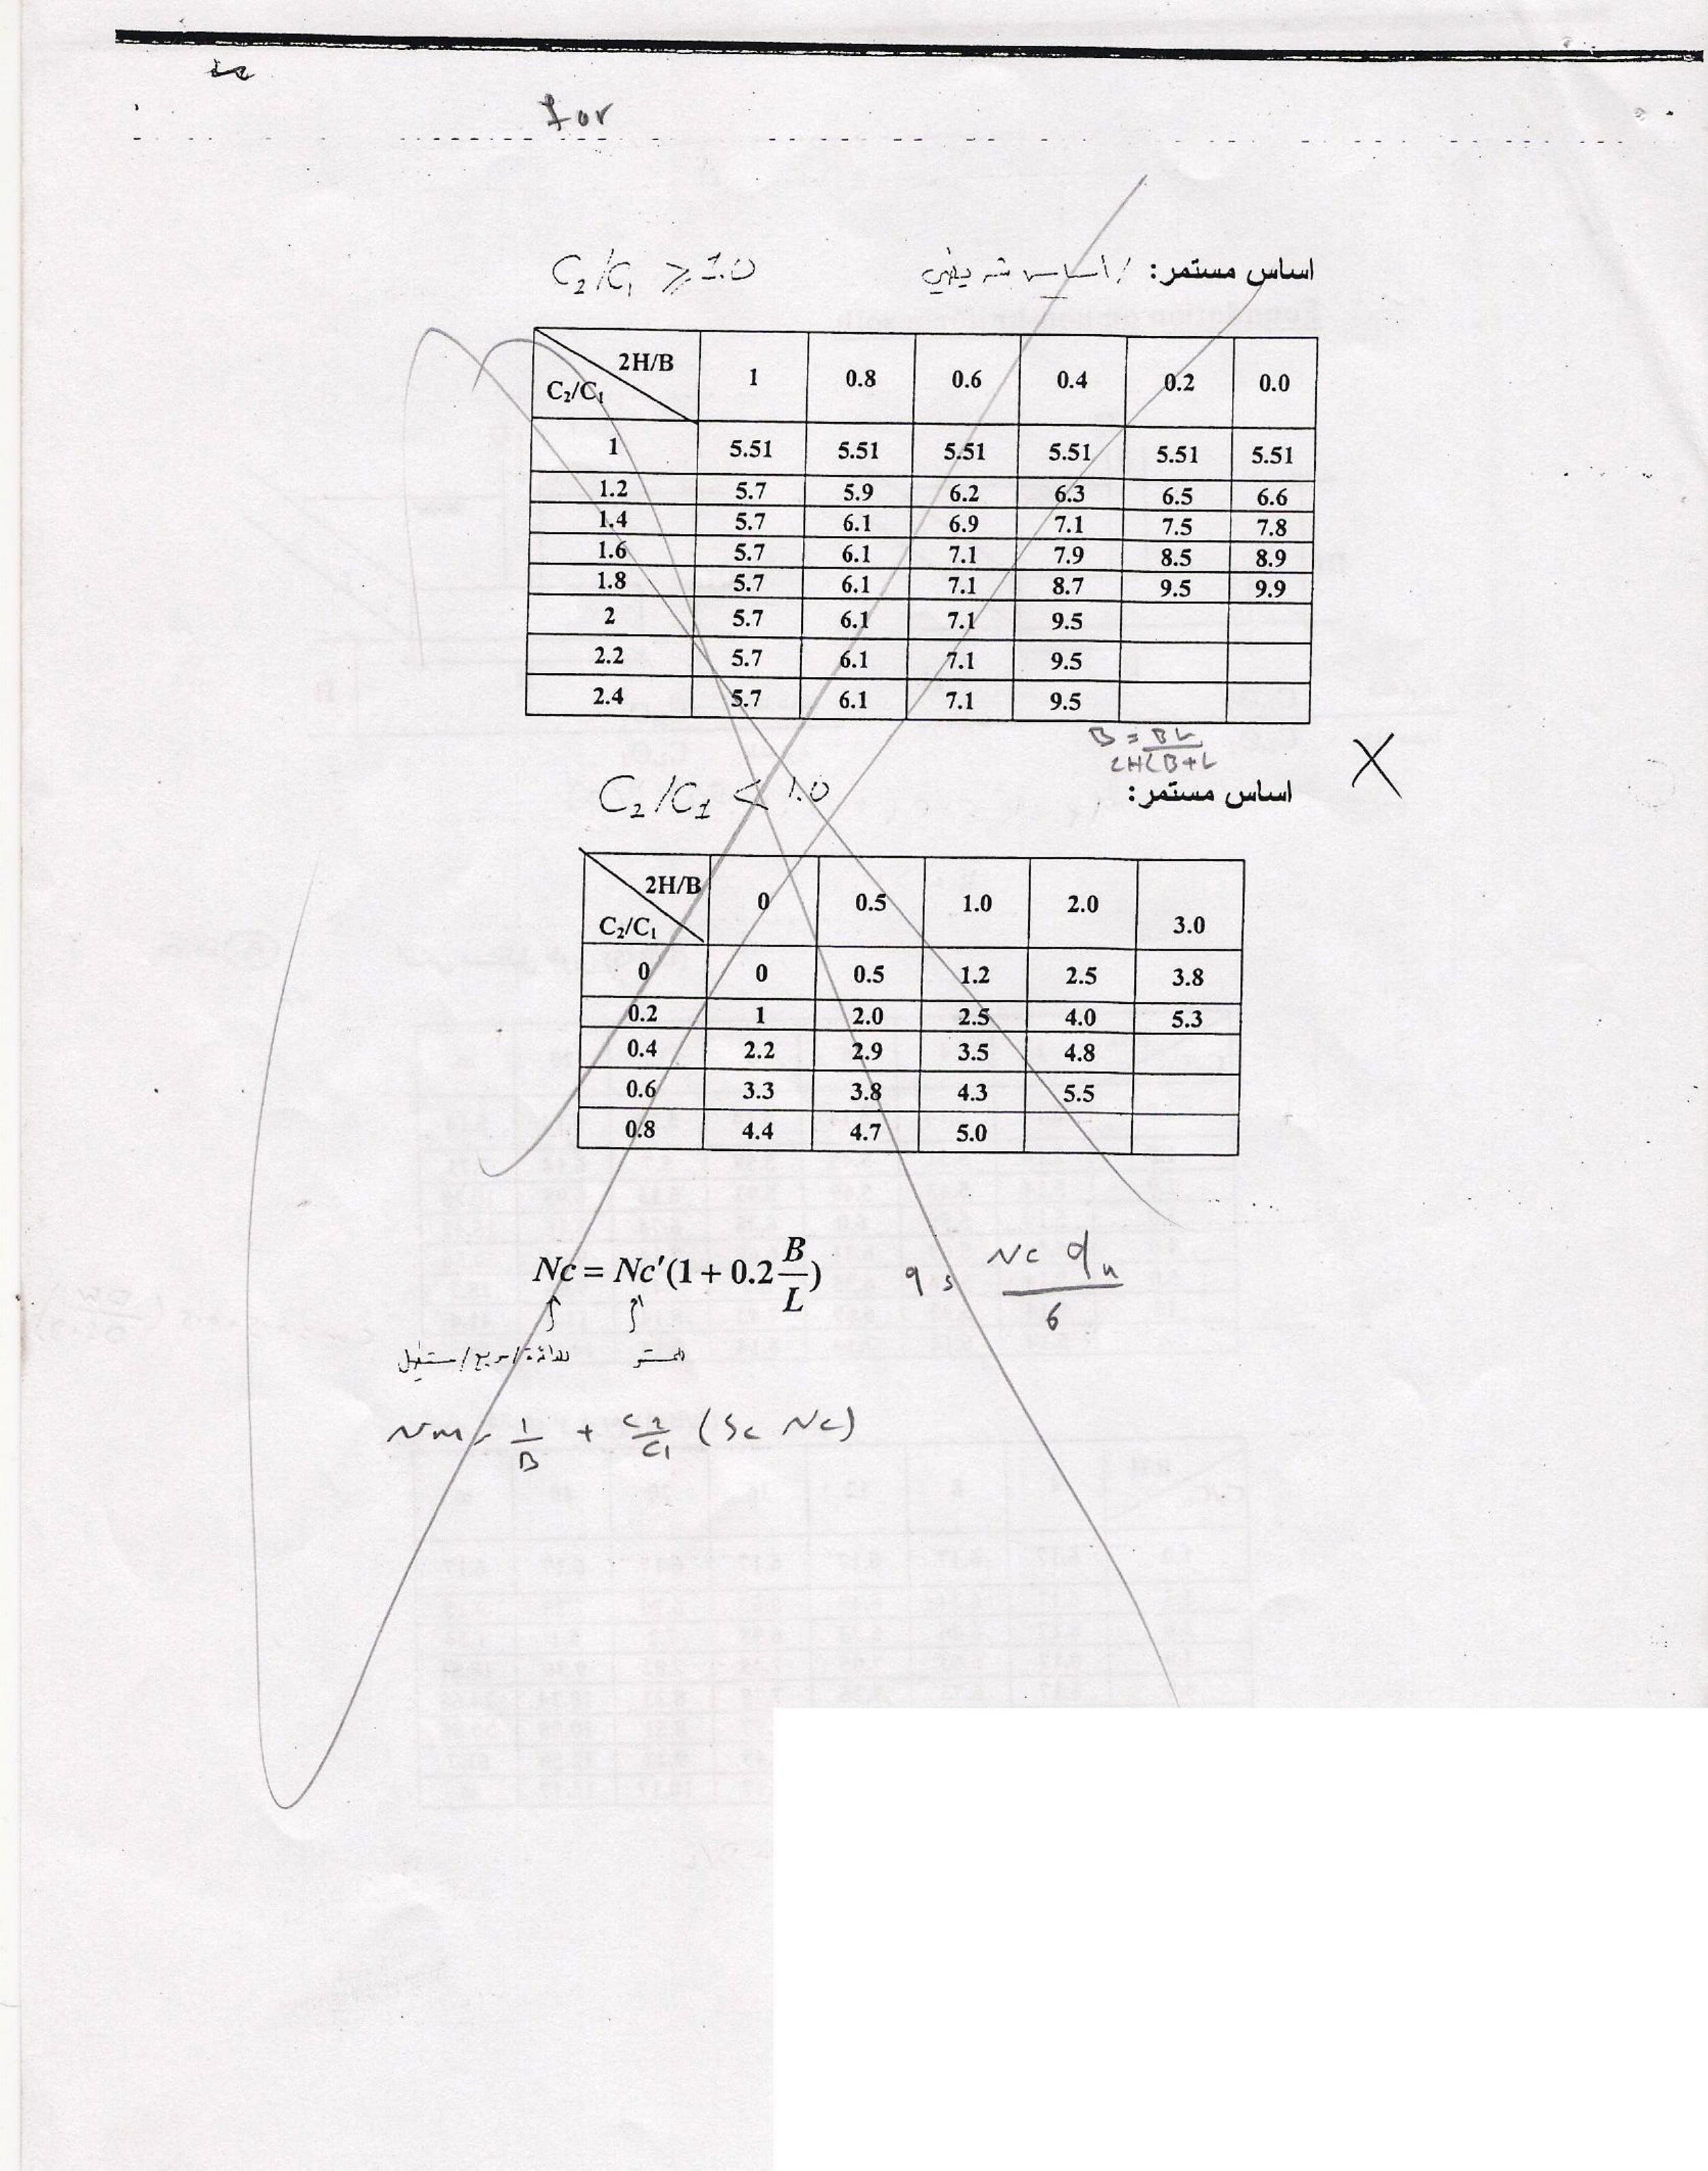 for
C₂/C₁ ≥ 1.0 اساس مستمر: / اساس شريطي
2H/B 1 0.8 0.6 0.4 0.2 0.0
C₂/C₁
1 5.51 5.51 5.51 5.51 5.51 5.51
1.2 5.7 5.9 6.2 6.3 6.5 6.6
1.4 5.7 6.1 6.9 7.1 7.5 7.8
1.6 5.7 6.1 7.1 7.9 8.5 8.9
1.8 5.7 6.1 7.1 8.7 9.5 9.9
2 5.7 6.1 7.1 9.5
2.2 5.7 6.1 7.1 9.5
2.4 5.7 6.1 7.1 9.5
B = BL / 2H(B+L
X
C₂/C₁ < 1.0 اساس مستمر:
2H/B 0 0.5 1.0 2.0 3.0
C₂/C₁
0 0 0.5 1.2 2.5 3.8
0.2 1 2.0 2.5 4.0 5.3
0.4 2.2 2.9 3.5 4.8
0.6 3.3 3.8 4.3 5.5
0.8 4.4 4.7 5.0
Nc = Nc′(1 + 0.2 B/L) q = Nc qu / 6
↑ ↑
للدائرة/مربع/مستطيل المستمر
Nm = 1/B + C2/C1 (Sc Nc)